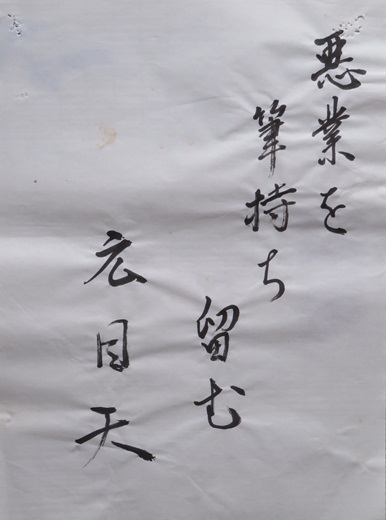 悪業を
筆持ち
留む
広目天